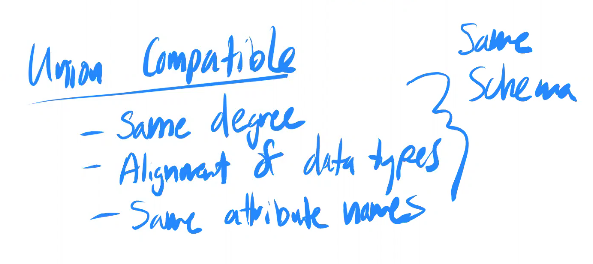 Union Compatible
- Same degree
- Alignment of data types
- Same attribute names
Same
Schema